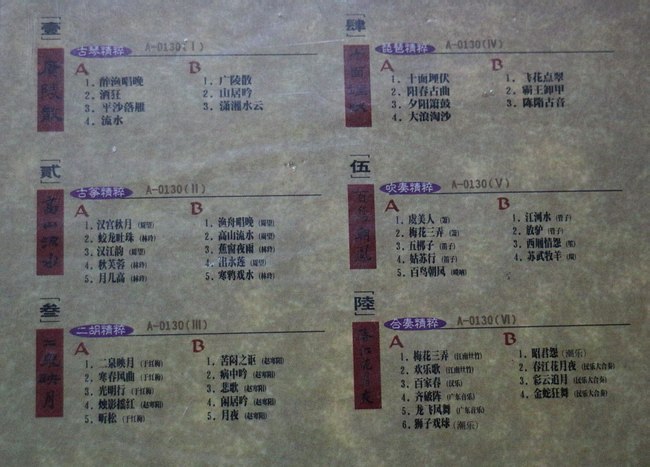 [壹]
广陵散
古琴精粹 A-0130(I)
A
1. 醉渔唱晚
2. 酒狂
3. 平沙落雁
4. 流水
B
1. 广陵散
2. 山居吟
3. 潇湘水云
[贰]
高山流水
古筝精粹 A-0130(II)
A
1. 汉宫秋月
2. 蛟龙吐珠 (林玲)
3. 汉江韵
4. 秋芙蓉 (林玲)
5. 月儿高 (林玲)
B
1. 渔舟唱晚
2. 高山流水
3. 蕉窗夜雨 (林玲)
4. 出水莲
5. 寒鸦戏水 (林玲)
[叁]
二泉映月
二胡精粹 A-0130(III)
A
1. 二泉映月 (于红梅)
2. 寒春风曲 (于红梅)
3. 光明行 (于红梅)
4. 烛影摇红 (赵寒阳)
5. 听松 (于红梅)
B
1. 苦闷之讴 (赵寒阳)
2. 病中吟 (赵寒阳)
3. 悲歌 (赵寒阳)
4. 闲居吟 (赵寒阳)
5. 月夜 (赵寒阳)
[肆]
十面埋伏
琵琶精粹 A-0130(IV)
A
1. 十面埋伏
2. 阳春古曲
3. 夕阳箫鼓
4. 大浪淘沙
B
1. 飞花点翠
2. 霸王卸甲
3. 陈隋古音
[伍]
吹奏精粹 A-0130(V)
A
1. 虞美人
2. 梅花三弄
3. 五梆子 (笛子)
4. 姑苏行 (笛子)
5. 百鸟朝凤 (唢呐)
B
1. 江河水 (管子)
2. 放驴 (管子)
3. 西厢情怨
4. 苏武牧羊
[陸]
春江花月夜
合奏精粹 A-0130(VI)
A
1. 梅花三弄 (江南丝竹)
2. 欢乐歌 (江南丝竹)
3. 百家春 (民乐)
4. 齐破阵 (广东音乐)
5. 龙飞凤舞 (广东音乐)
6. 狮子戏球 (潮乐)
B
1. 昭君怨 (潮乐)
2. 春江花月夜 (民乐大合奏)
3. 彩云追月 (民乐大合奏)
4. 金蛇狂舞 (民乐大合奏)